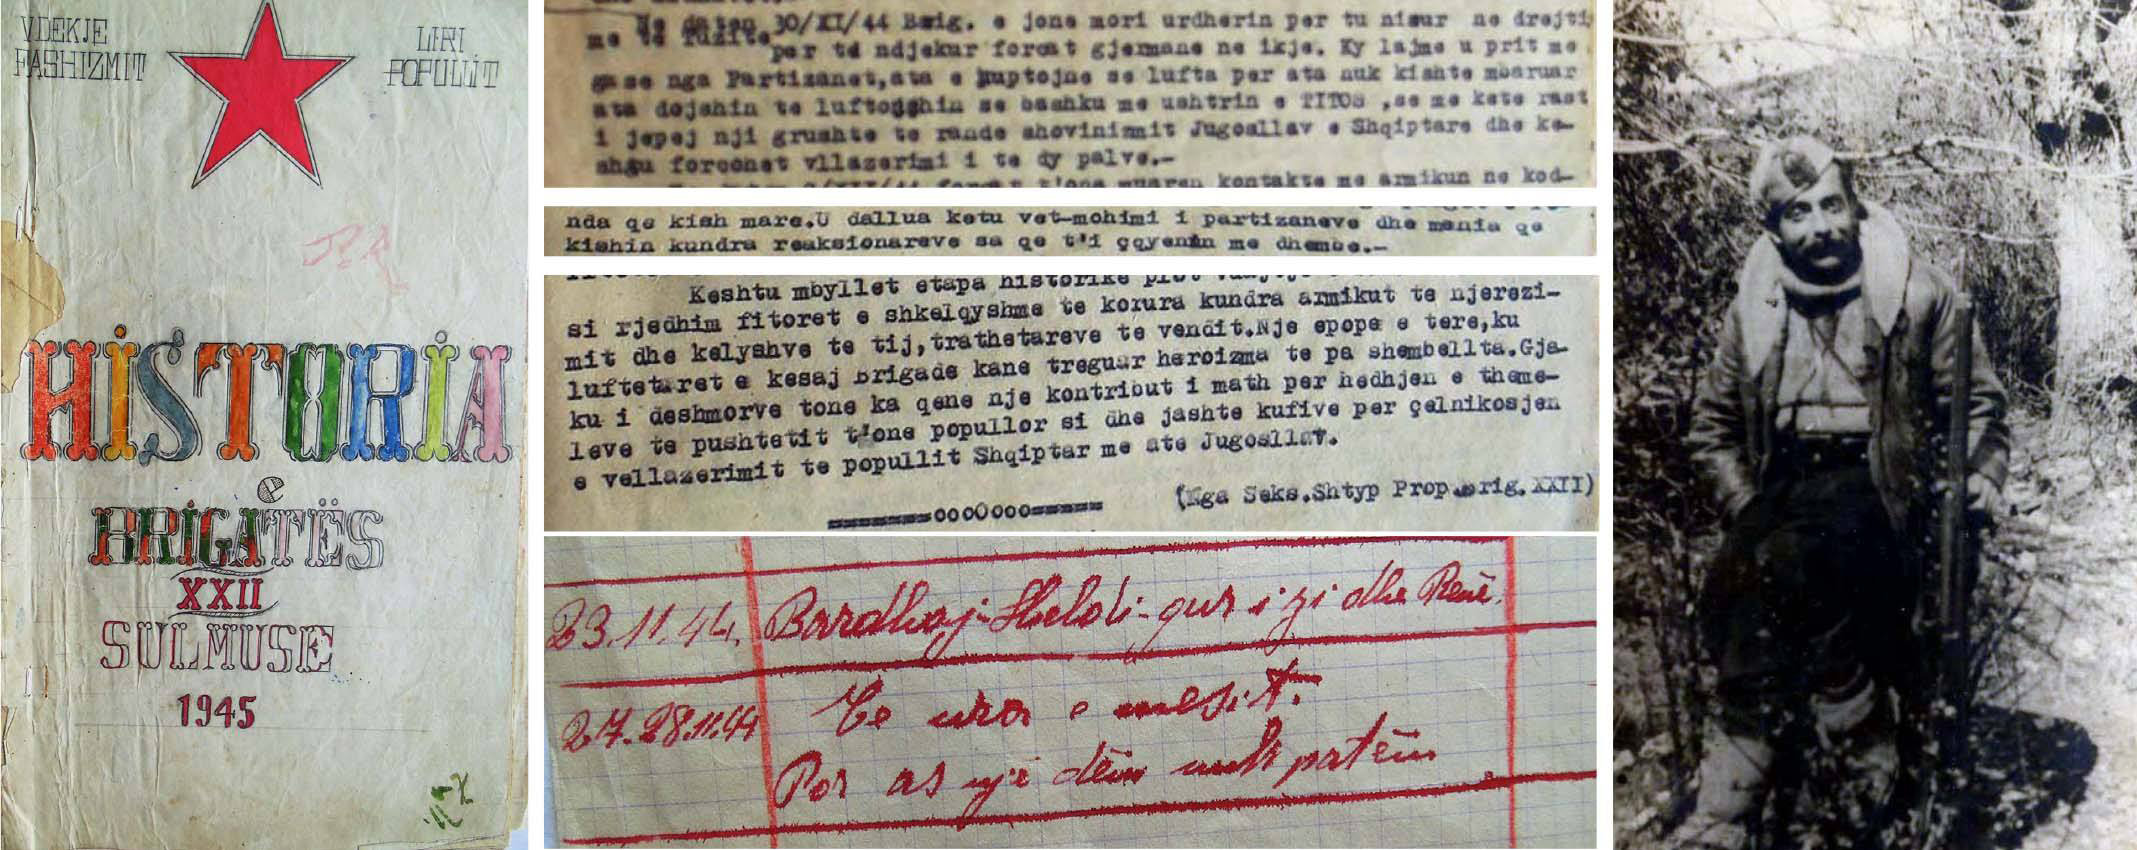 VDEKJE
FASHIZMIT
LIRI
POPULLIT
HISTORIA
e
BRIGATËS
XXII
SULMUSE
1945
Me daten 30/XI/44 Brig. e jone mori urdherin per tu nisur ne drejti
me te
per të ndjekur forcat gjermane ne ikje. Ky lajme u prit me
gase nga Partizanet,ata e kuptojne se lufta per ata nuk kishte mbaruar
ata dojshin te luftojshin se bashku me ushtrin e TITOS ,se me kete rast
i jepej nji grushte te rande shovinizmit Jugosllav e Shqiptare dhe ke-
shgu forcohet vllazerimi i te dy palve.-
t'ona muaren kontakte me armikun ne kod-
nda qe kish mare.U dallua ketu vet-mohimi i partizaneve dhe menia qe
kishin kundra reaksionareve sa qe t'i çqyenin me dhembe.-
Keshtu mbyllet etapa historike plot
si rjedhim fitoret e shkelqyshme te korura kundra armikut te njerezi-
mit dhe kelyshve te tij,trathetareve te vendit.Nje epope e tere,ku
luftetaret e kesaj Brigade kane treguar heroizma te pa shembellta.Gja-
ku i deshmorve tone ka qene nje kontribut i math per hedhjen e theme-
leve te pushtetit t'one popullor si dhe jashte kufive per çelnikosjen
e vellazerimit te popullit Shqiptar me ate Jugosllav.
(Nga Seks.Shtyp Prop.Brig.XXII)
========ooo0ooo======
23.11.44. Bardhaj-Sheldi-gur i zi dhe Renë.
27.28.11.44 Te ura e mesit.
Por as një dëm nuk patëm